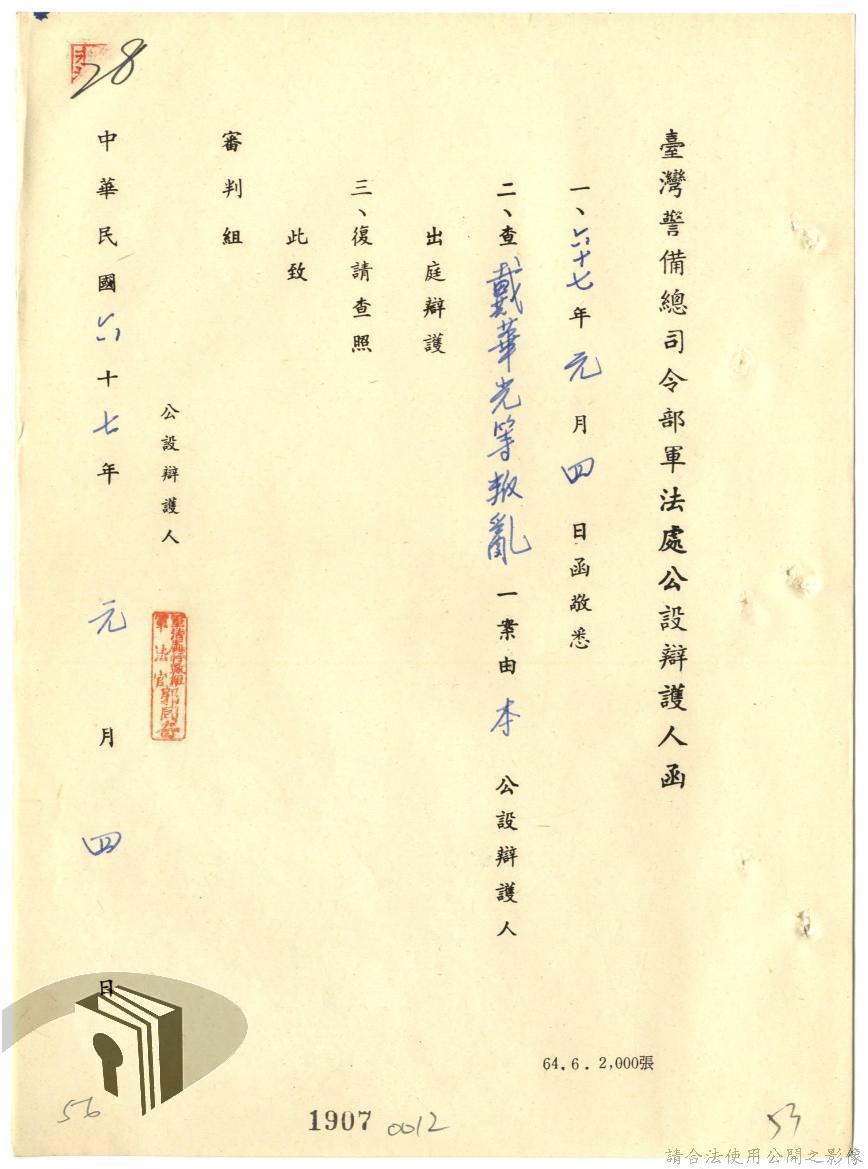 28
臺灣警備總司令部軍法處公設辯護人函
一、六十七年元月四日函敬悉
二、查戴華光等叛亂一案由本公設辯護人
出庭辯護
三、復請查照
此致
審判組
公設辯護人
中華民國六十七年元月四日
64.6.2,000張
56
1907
0012
53
請合法使用公開之影像